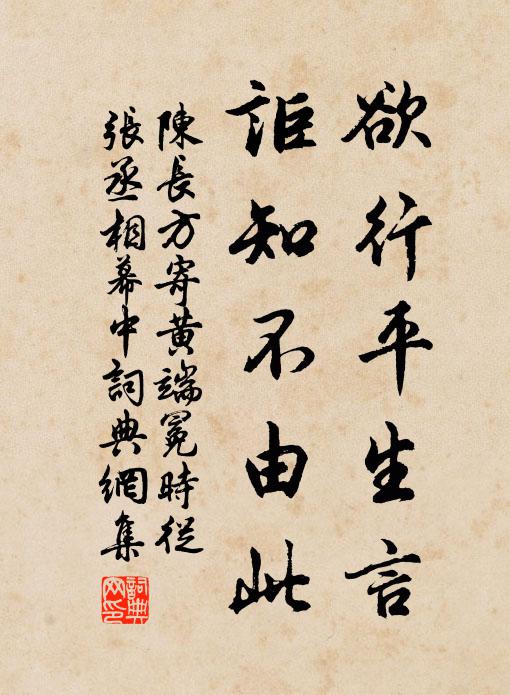 欲行平生言
詎知不由此
陳長方寄黃端冕時從
張丞相幕中詞典網集
詞典
网印